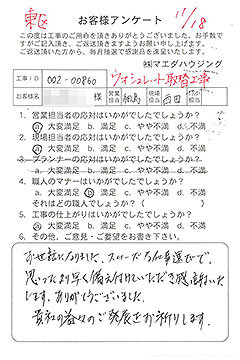 東区 11/18
お客様アンケート
この度は工事のご用命を頂きありがとうございました。お手数で
すがご記入頂き、ご返送頂きますようお願い申し上げます。
ご返送頂いた方から、毎月抽選で感謝品を進呈いたします。
㈱マエダハウジング
工事ID 002-00860 ウォシュレット取替工事
お客様名 様 営業担当 相島 現場担当 西田
1. 営業担当者の応対はいかがでしたでしょうか?
a. 大変満足 b. 満足 c. やや不満 d. 不満
2. 現場担当者の応対はいかがでしたでしょうか?
a. 大変満足 b. 満足 c. やや不満 d. 不満
3. プランナーの応対はいかがでしたでしょうか?
a. 大変満足 b. 満足 c. やや不満 d. 不満
4. 職人のマナーはいかがでしたでしょうか?
a. 大変満足 b. 満足 c. やや不満 d. 不満
それはどの職人でしょうか?( )
5. 工事の仕上がりはいかがでしたでしょうか?
a. 大変満足 b. 満足 c. やや不満 d. 不満
6. その他、ご意見・ご要望をお書き下さい。
お世話になりました。スムーズな仕事運びで、
思ったより早く備え付けていただき感謝いた
します。ありがとうございました。
貴社の益々のご発展をお祈りします。